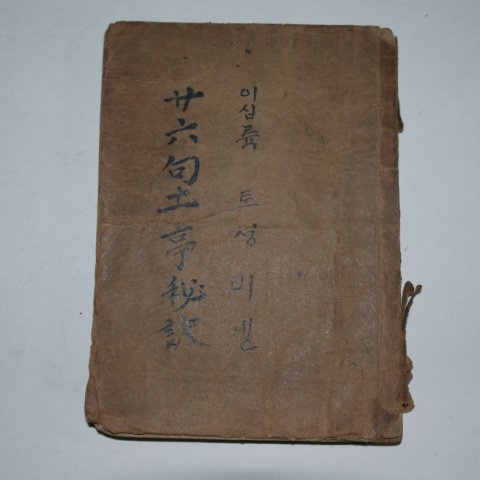 이십륙 토정비결
廿六句土亭秘訣